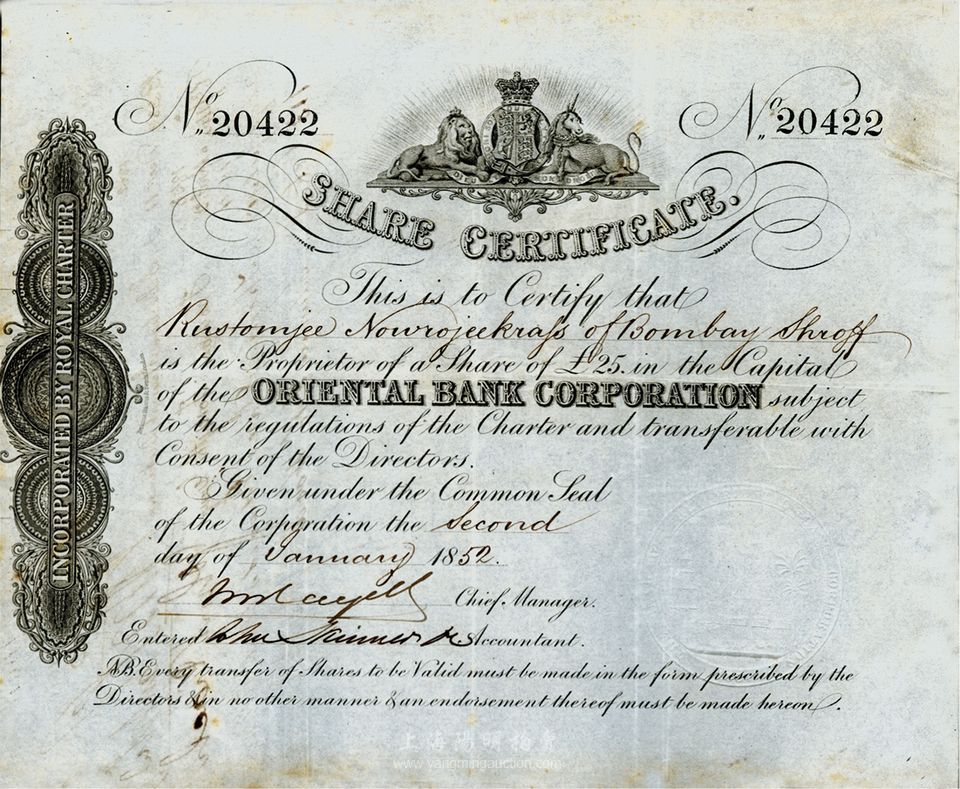 No 20422
No 20422
SHARE CERTIFICATE.
INCORPORATED BY ROYAL CHARTER
This is to Certify that
Rustomjee Nowrojeekrass of Bombay Shroff
is the Proprietor of a Share of £25. in the Capital
of the ORIENTAL BANK CORPORATION subject
to the regulations of the Charter and transferable with
Consent of the Directors.
Given under the Common Seal
of the Corporation the Second
day of January 1852.
Chief Manager.
Entered John Skinner Accountant.
NB. Every transfer of Shares to be Valid must be made in the form prescribed by the
Directors & in no other manner & an endorsement thereof must be made hereon.
上海陽明拍賣
www.yangmingauction.com